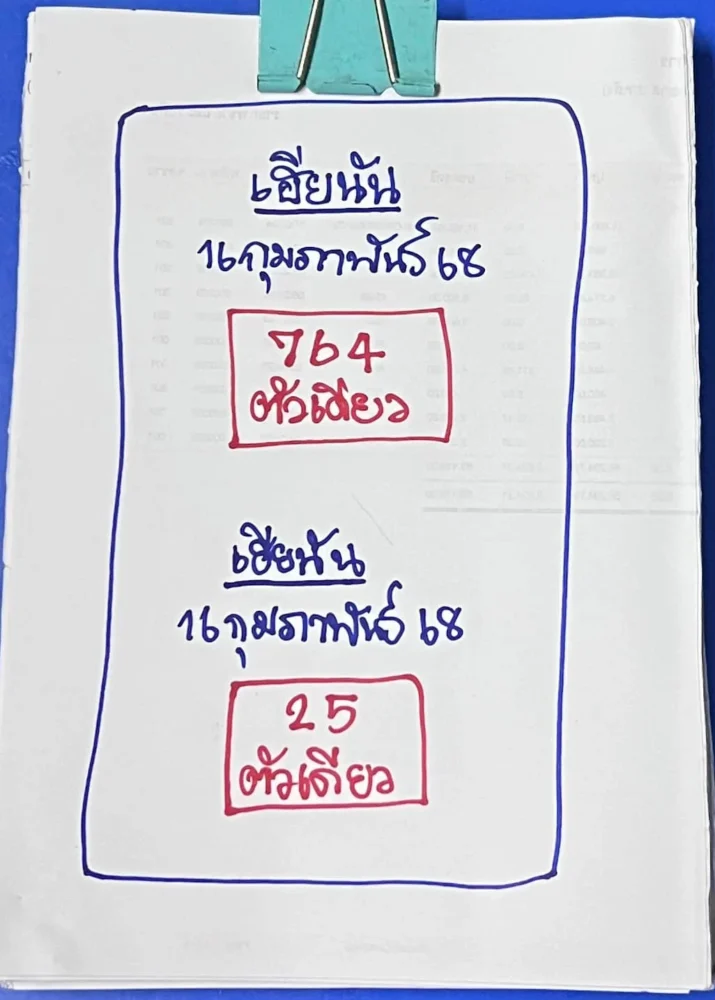 เฮียนัน
16 กุมภาพันธ์ 68
764
ตัวเดียว
เฮียนัน
16 กุมภาพันธ์ 68
25
ตัวเดียว